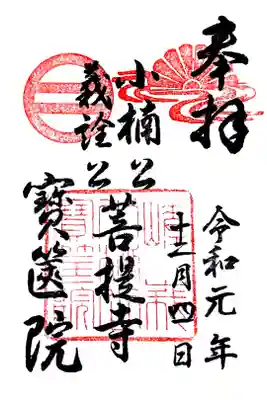 奉拝
令和元年
十二月四日
小楠公
義詮公
菩提寺
寳筐院